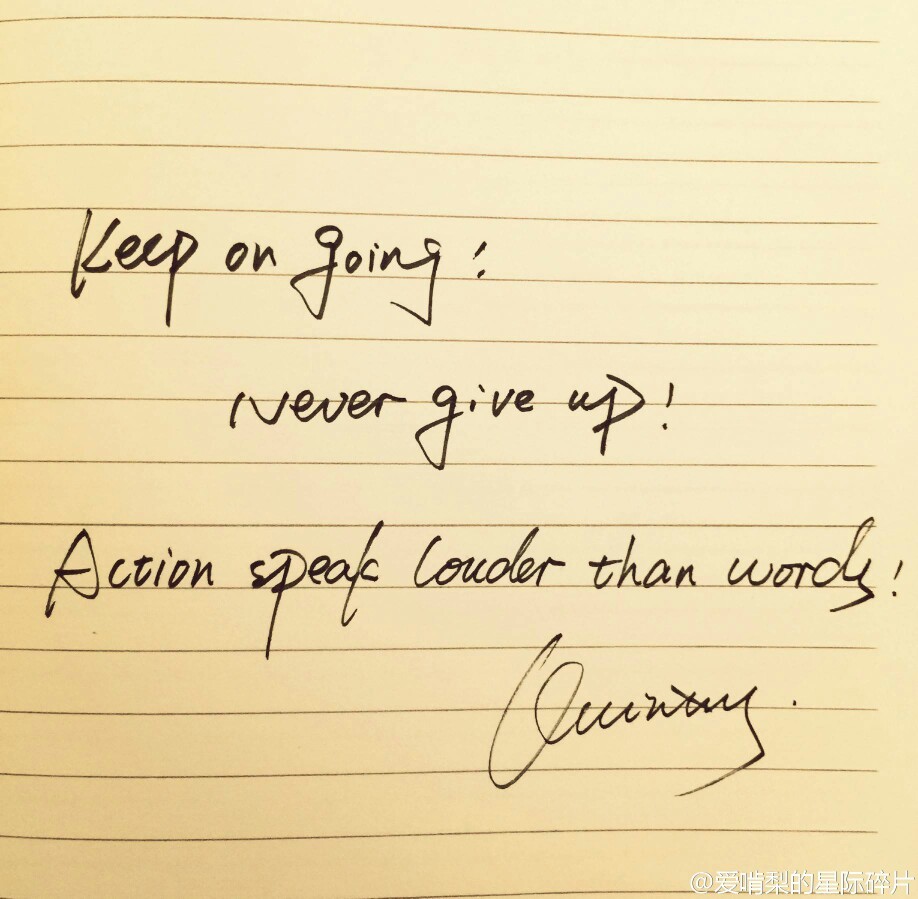 Keep on going!
Never give up!
Action speak louder than words!
@爱啃梨的星际碎片